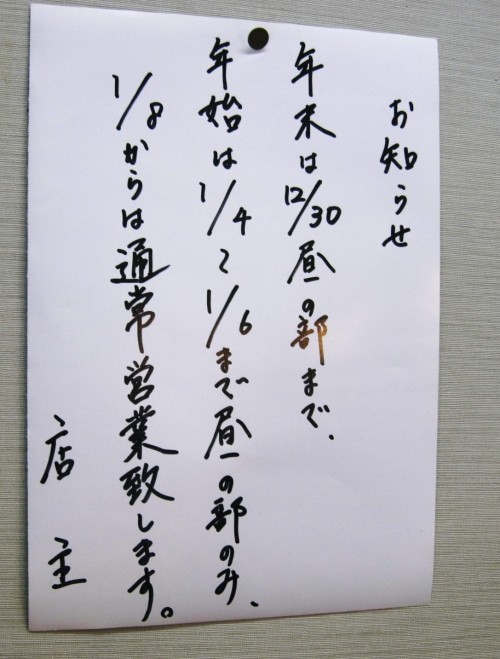 お知らせ
年末は12/30昼の部まで、
年始は1/4〜1/6まで昼の部のみ、
1/8からは通常営業致します。
店主